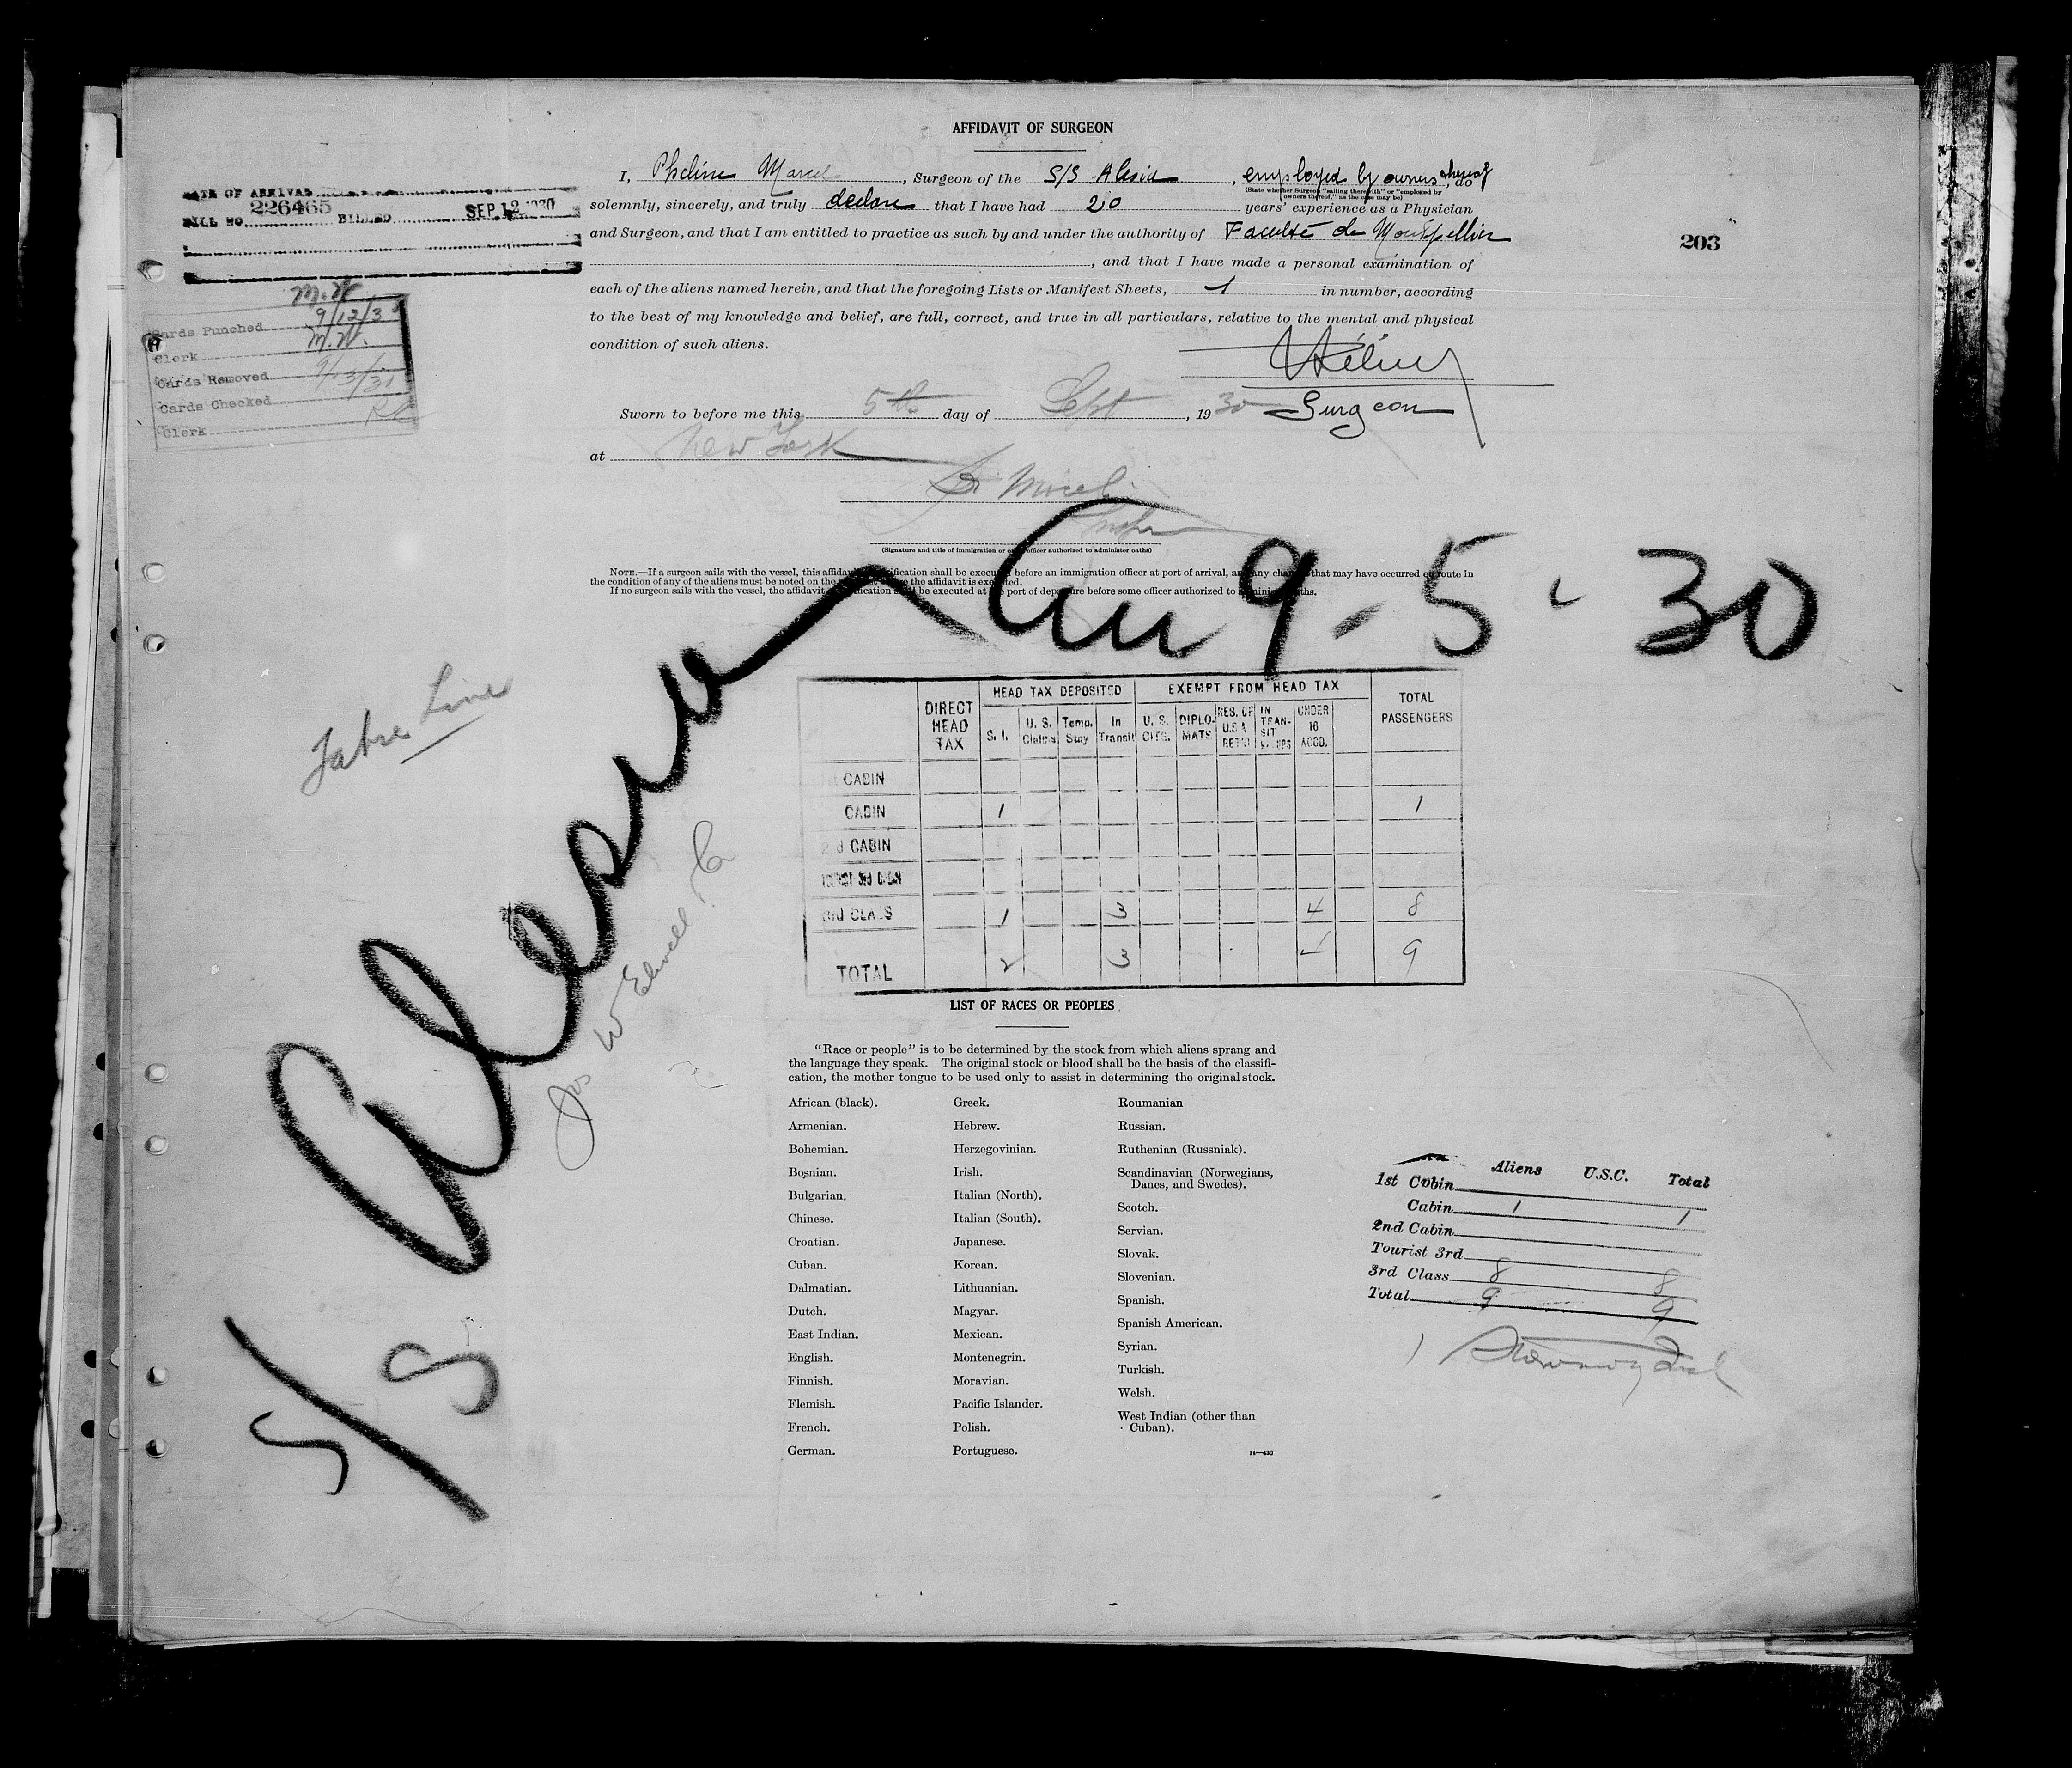 AFFIDAVIT OF SURGEON
I, Pheline Marcel, Surgeon of the S/S Alesia, employed by owners thereof, do
(State whether Surgeon "sailing therewith" or "employed by
owners thereof," as the case may be)
solemnly, sincerely, and truly declare that I have had 20 years' experience as a Physician
and Surgeon, and that I am entitled to practice as such by and under the authority of Faculté de Montpellier
, and that I have made a personal examination of
each of the aliens named herein, and that the foregoing Lists or Manifest Sheets, 1 in number, according
to the best of my knowledge and belief, are full, correct, and true in all particulars, relative to the mental and physical
condition of such aliens.
Surgeon
Sworn to before me this 5th day of Sept, 1930
at New York
(Signature and title of immigration or other officer authorized to administer oaths)
NOTE.—If a surgeon sails with the vessel, this affidavit shall be executed before an immigration officer at port of arrival, and any changes that may have occurred en route in
the condition of any of the aliens must be noted on the the affidavit is executed.
If no surgeon sails with the vessel, the affidavit shall be executed at the port of departure before some officer authorized to administer oaths.
DATE OF ARRIVAL
BILL NO. 226465 BILLED SEP 12 1930
M.W.
Cards Punched 9/12/3
Clerk M.W.
Cards Removed
Cards Checked
Clerk
203
S/S Alesia Arr 9-5-30
Fabre Line
Jos W Elwell & Co
DIRECT HEAD TAX
HEAD TAX DEPOSITED
EXEMPT FROM HEAD TAX
TOTAL PASSENGERS
S. I. U. S. Claims Temp. Stay In Transit U. S. CITS. DIPLO-MATS RES. OF U.S.A. RET'G IN TRAN-SIT UNDER 16 ACCD.
CABIN
CABIN 1 1
2nd CABIN
3RD CLASS 1 3 4 8
TOTAL 2 3 4 9
LIST OF RACES OR PEOPLES
"Race or people" is to be determined by the stock from which aliens sprang and
the language they speak. The original stock or blood shall be the basis of the classifi-
cation, the mother tongue to be used only to assist in determining the original stock.
African (black).
Armenian.
Bohemian.
Bosnian.
Bulgarian.
Chinese.
Croatian.
Cuban.
Dalmatian.
Dutch.
East Indian.
English.
Finnish.
Flemish.
French.
German.
Greek.
Hebrew.
Herzegovinian.
Irish.
Italian (North).
Italian (South).
Japanese.
Korean.
Lithuanian.
Magyar.
Mexican.
Montenegrin.
Moravian.
Pacific Islander.
Polish.
Portuguese.
Roumanian
Russian.
Ruthenian (Russniak).
Scandinavian (Norwegians,
Danes, and Swedes).
Scotch.
Servian.
Slovak.
Slovenian.
Spanish.
Spanish American.
Syrian.
Turkish.
Welsh.
West Indian (other than
Cuban).
14—430
Aliens U.S.C. Total
1st Cabin
Cabin 1 1
2nd Cabin
Tourist 3rd
3rd Class 8 8
Total 9 9